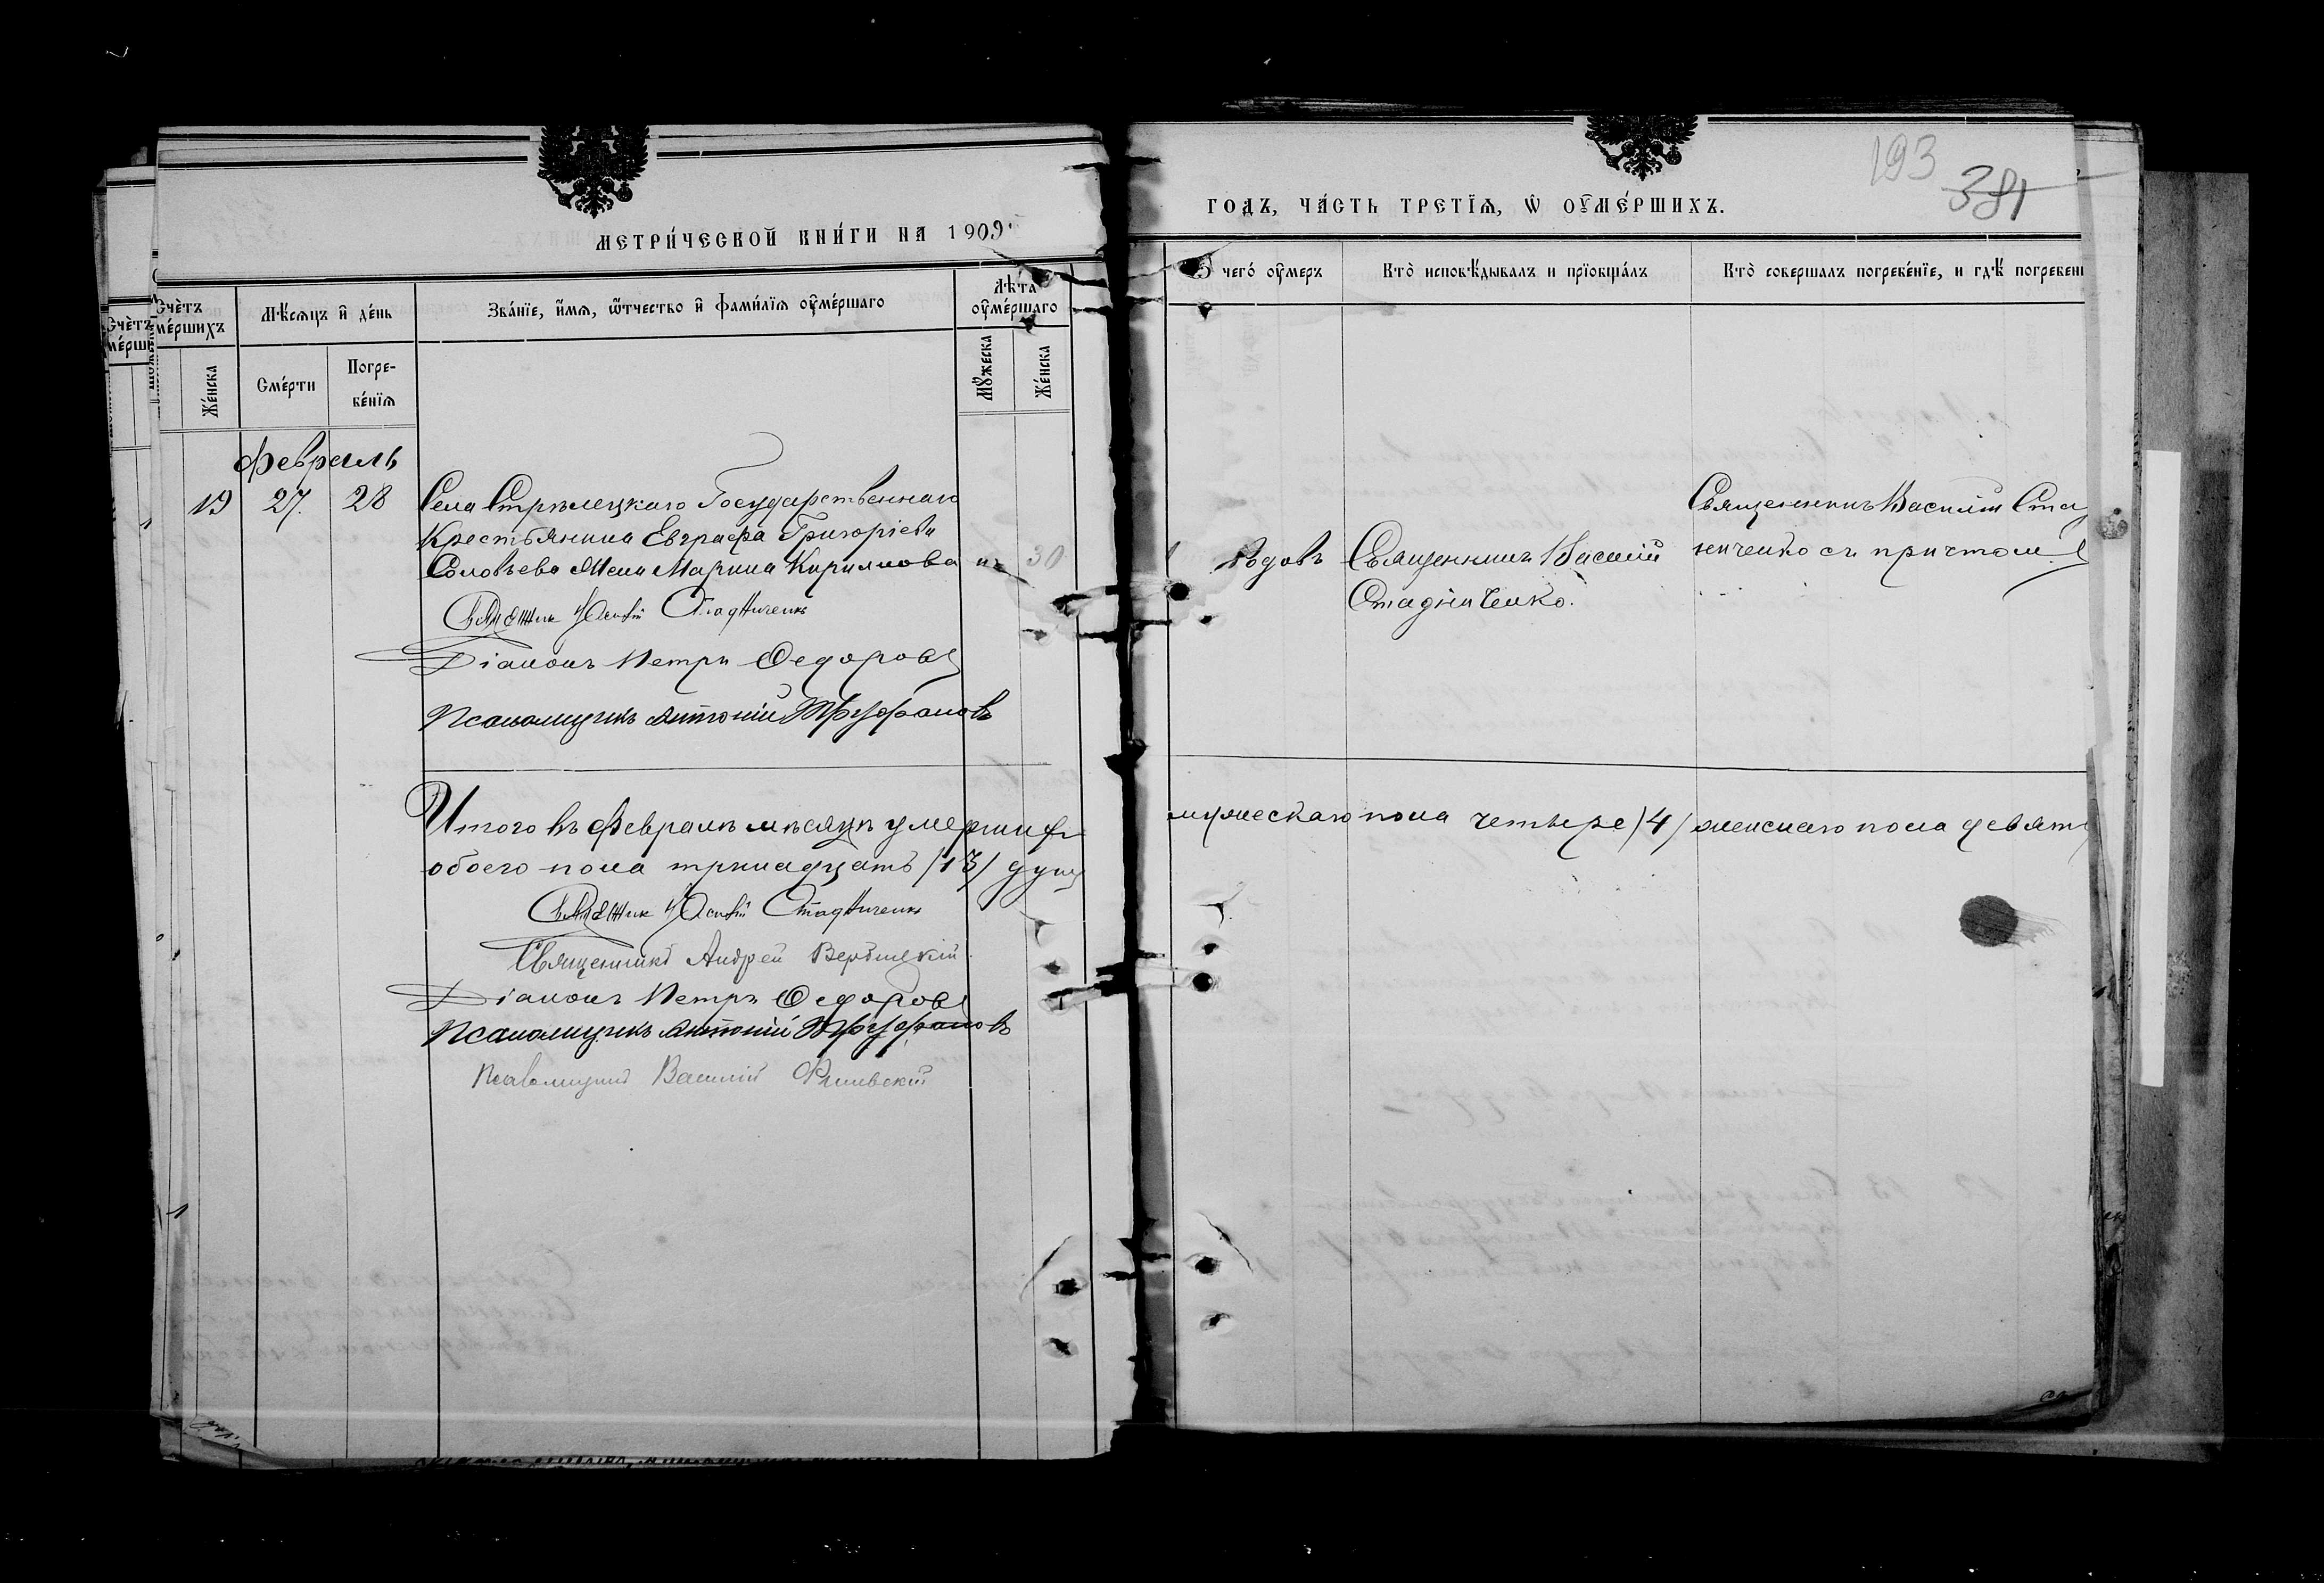 МЕТРИ́ЧЕСКОЙ КНИ́ГИ НА 1909.
ГОДЪ, ЧА́СТЬ ТРЕТЇѦ, Ѡ ОУМЕ́РШИХЪ.
193
381
Счетъ оумершихъ
Мѣсѧцъ и день
Званїе, имѧ, ѿчество и фамилїѧ оумершаго
Лѣта оумершаго
чего оумеръ
Кто исповѣдывалъ и прїобщалъ
Кто совершалъ погребенїе, и гдѣ погребен
Женска
Смерти
Погребенїѧ
Мꙋжеска
Женска
Февраль
19 27. 28 Села Стрѣлецкаго Государственнаго
Крестьянина Евграфа Григоріева
Соловьева жена Марина Кирилова 30
Родовъ
Священникъ Василій
Стадниченко.
Священникъ Василій Стад
ниченко съ причтом
Стадниченко
Діаконъ Петръ Федоровъ
Псаломщикъ Антоній Труфановъ
Итого въ Февралѣ мѣсяцѣ умершихъ
мужескаго пола четыре /4/ женскаго пола девять
обоего пола тринадцать /13/ душ
Стадниченко
Священникъ Андрей Вербицкій
Діаконъ Петръ Федоровъ
Псаломщикъ Антоній Труфановъ
Псаломщикъ Василій